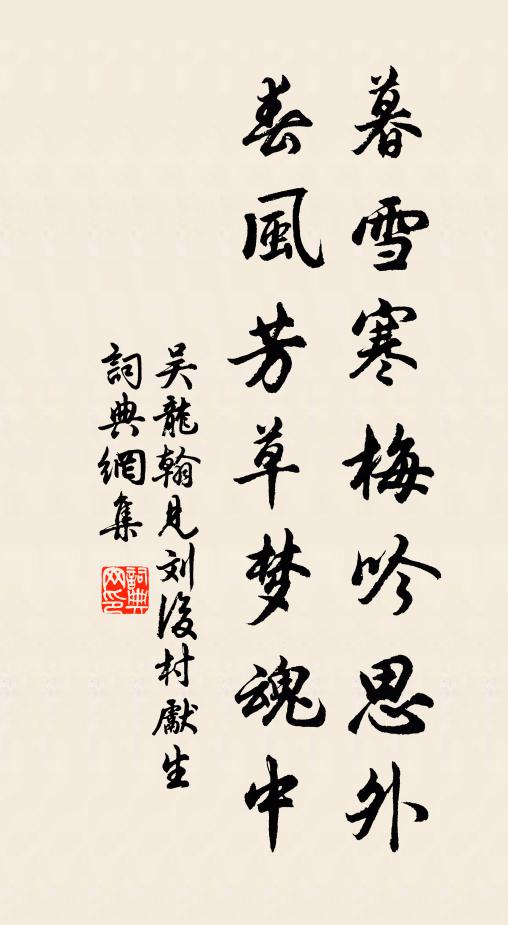 暮雪寒梅吟思外
春風芳草梦魂中
吴龍翰見刘後村獻生
詞典網集
詞典網印